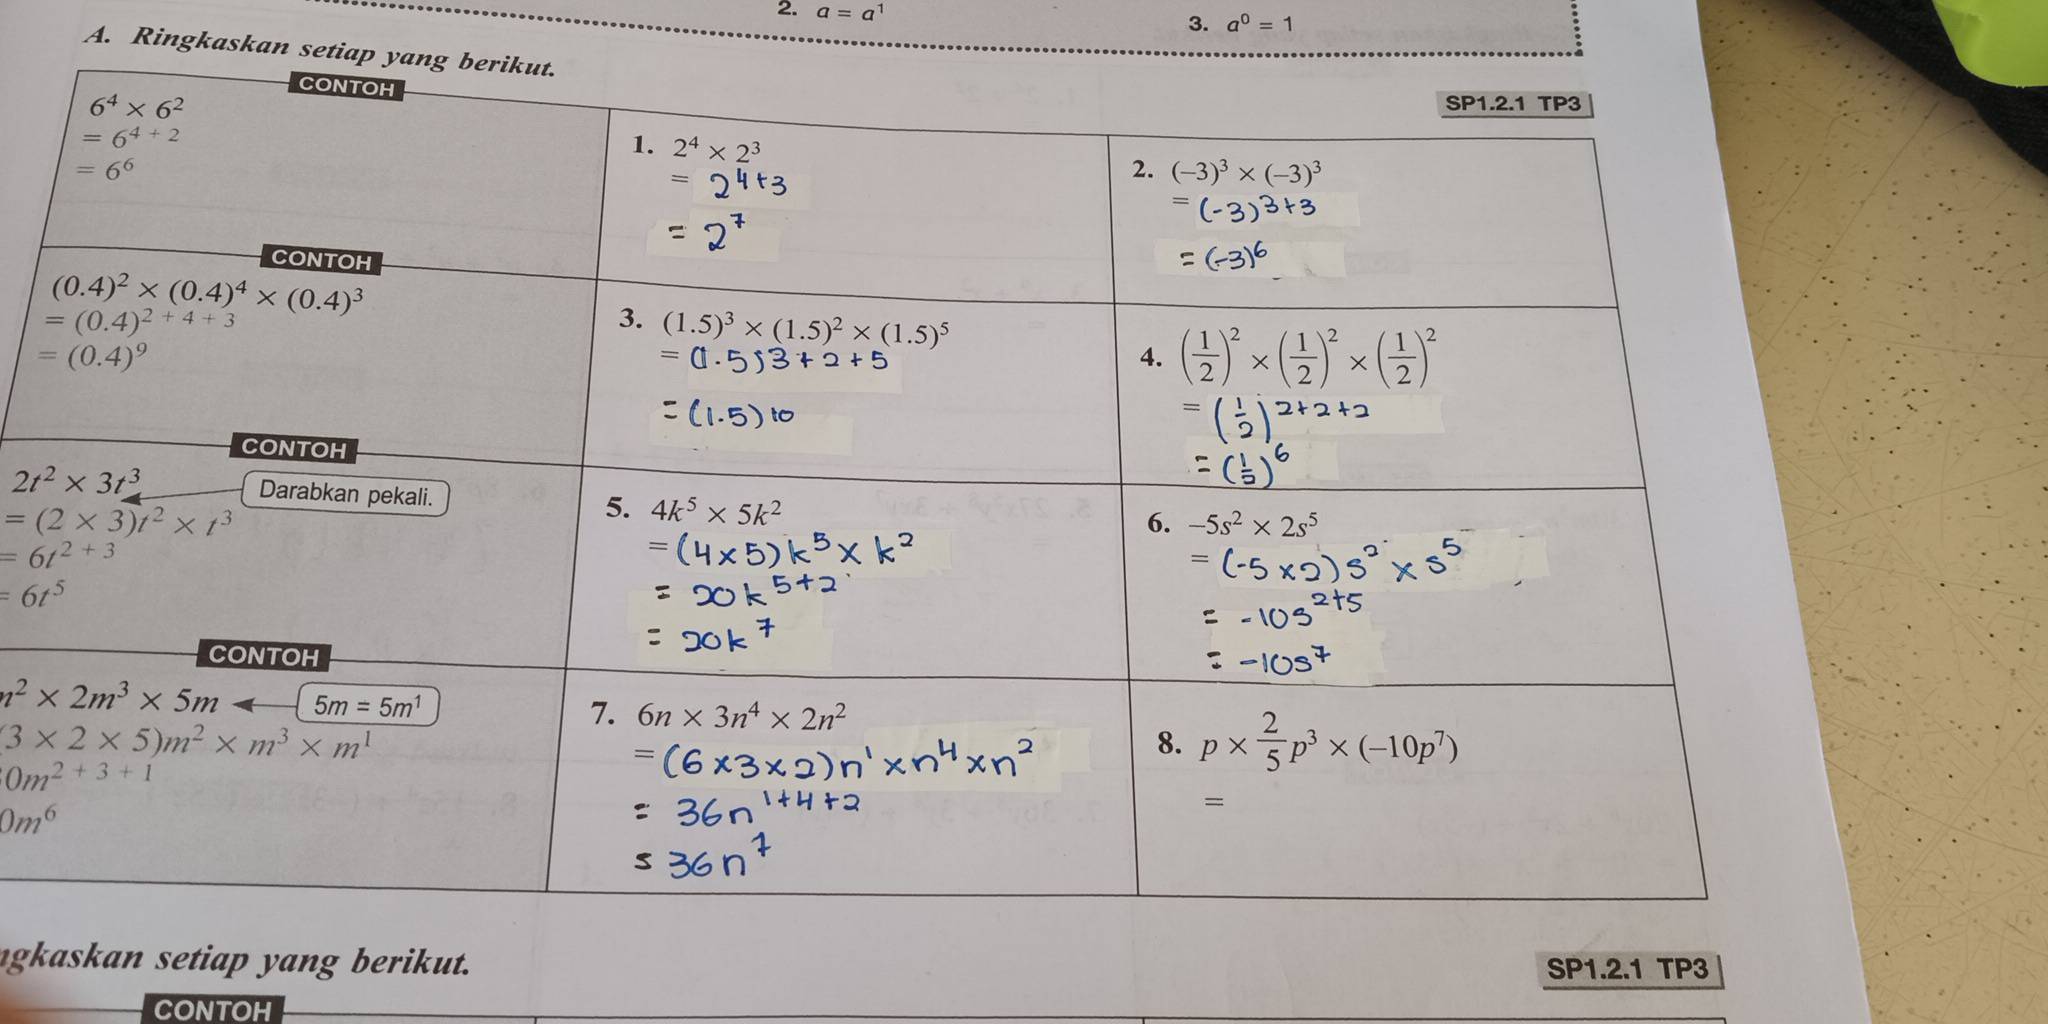 2. a = a¹
3. a⁰ = 1
A. Ringkaskan setiap yang berikut.
SP1.2.1 TP3
CONTOH
6⁴ × 6²
= 6⁴ ⁺ ²
= 6⁶
1. 2⁴ × 2³
= 2⁴⁺³
= 2⁷
2. (–3)³ × (–3)³
= (-3)³⁺³
= (-3)⁶
CONTOH
(0.4)² × (0.4)⁴ × (0.4)³
= (0.4)² ⁺ ⁴ ⁺ ³
= (0.4)⁹
3. (1.5)³ × (1.5)² × (1.5)⁵
= (1.5)3+2+5
= (1.5)10
4. (1/2)² × (1/2)² × (1/2)²
= (1/2)²⁺²⁺²
= (1/5)⁶
CONTOH
2t² × 3t³
Darabkan pekali.
= (2 × 3)t² × t³
= 6t² ⁺ ³
= 6t⁵
5. 4k⁵ × 5k²
= (4×5)k⁵ × k²
= 20k⁵⁺²
= 20k⁷
6. –5s² × 2s⁵
= (-5×2)s² × s⁵
= -10s²⁺⁵
= -10s⁷
CONTOH
m² × 2m³ × 5m
5m = 5m¹
(3 × 2 × 5)m² × m³ × m¹
0m² ⁺ ³ ⁺ ¹
0m⁶
7. 6n × 3n⁴ × 2n²
= (6×3×2)n¹×n⁴×n²
= 36n¹⁺⁴⁺²
= 36n⁷
8. p × 2/5 p³ × (–10p⁷)
=
ngkaskan setiap yang berikut.
SP1.2.1 TP3
CONTOH